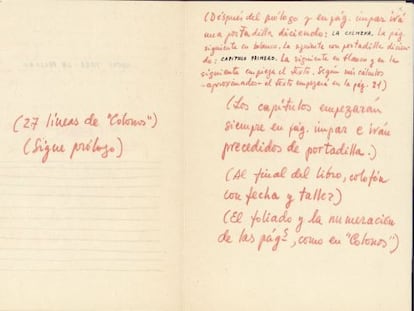 (27 líneas de "Colonos")
(Sigue prólogo)
(Después del prólogo y en pág. impar irá
una portadilla diciendo: LA COLMENA, la pág.
siguiente en blanco, la siguiente con portadilla dicien-
do: CAPITULO PRIMERO, la siguiente en blanco y en la
siguiente empieza el texto. Según mis cálculos
-aproximados- el texto empezará en la pág. 21)
(Los capítulos empezarán
siempre en pág. impar e irán
precedidos de portadilla.)
(Al final del libro, colofón
con fecha y taller)
(El foliado y la numeración
de las págs, como en "Colonos")